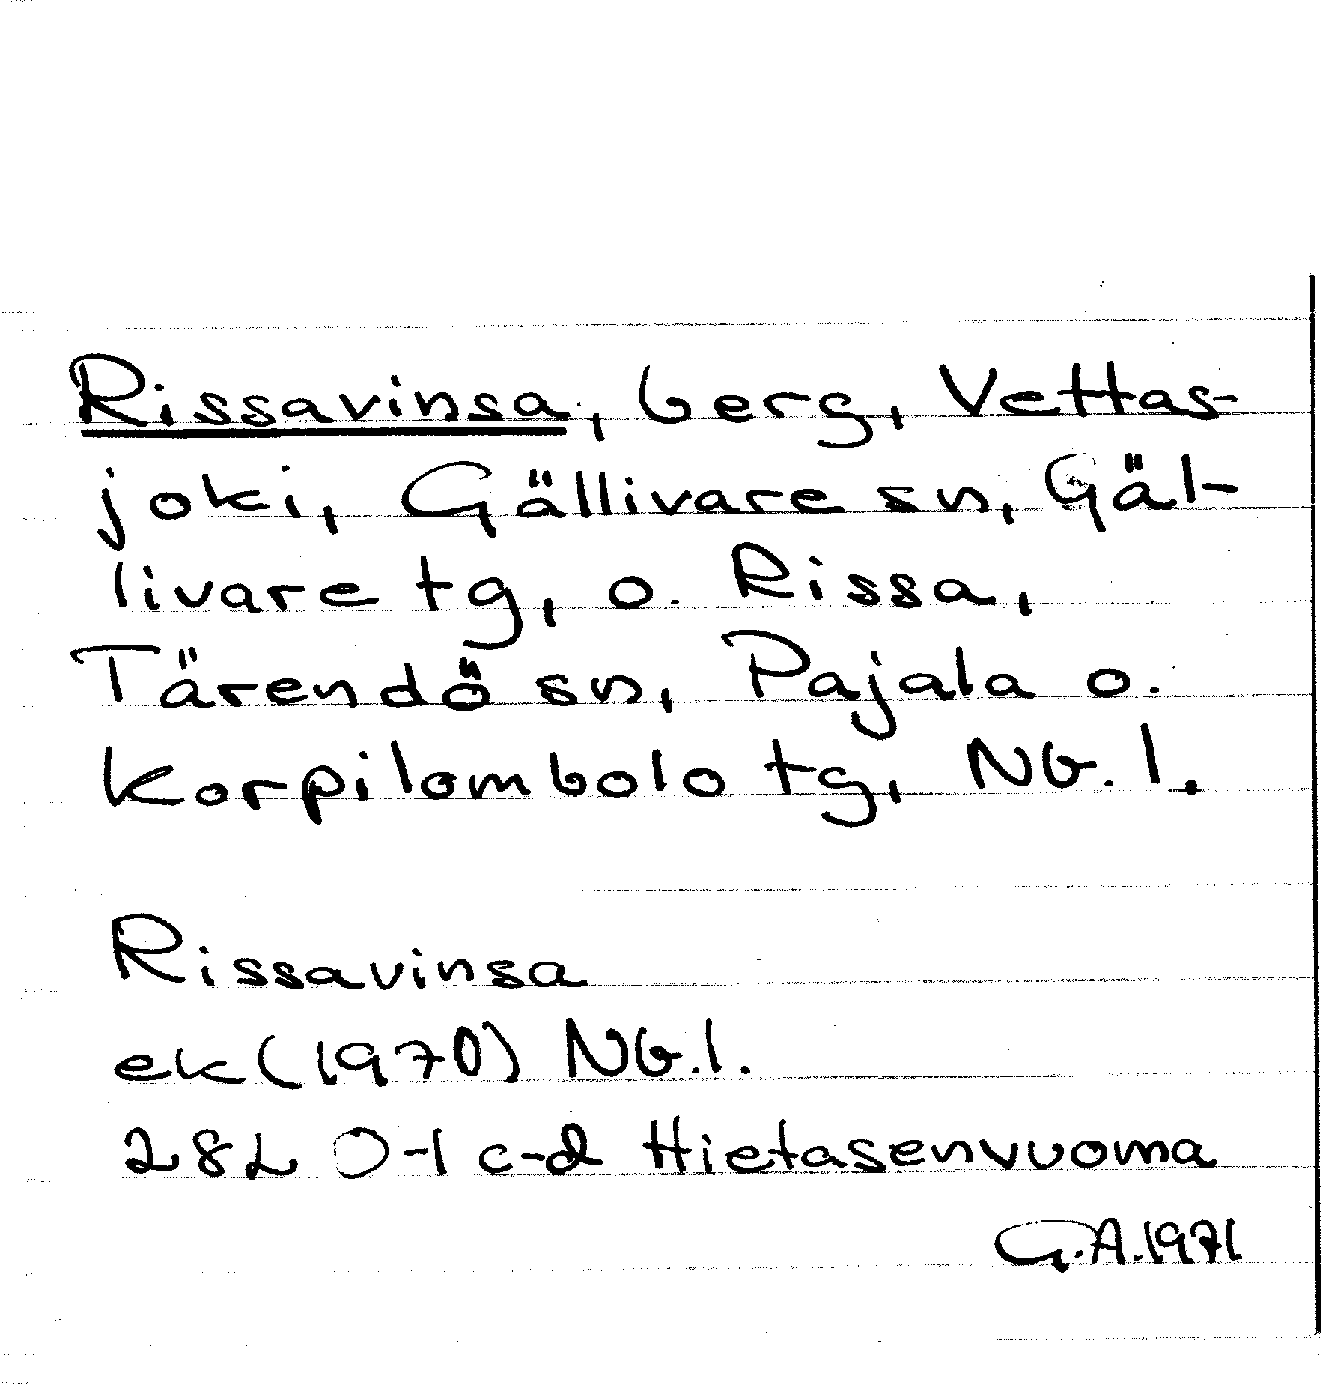 Rissavinsa, berg, Vettas-
joki, Gällivare sn, Gäl-
livare tg, o. Rissa,
Tärendö sn, Pajala o.
Korpilombolo tg, Nb. l.
Rissavinsa
ek (1970) Nb. l.
28L 0-1 c-d Hietasenvuoma
G.A. 1971